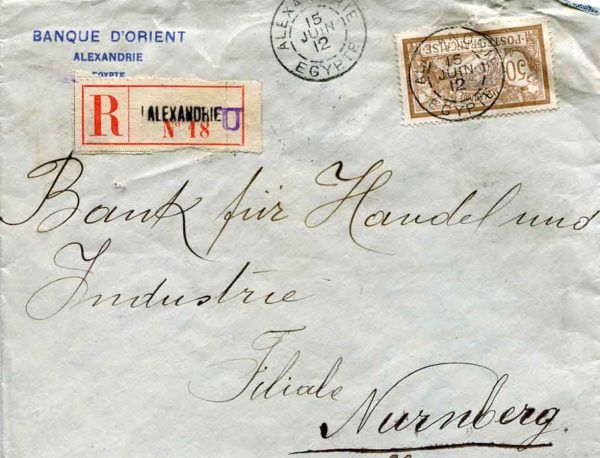 BANQUE D'ORIENT
ALEXANDRIE
EGYPTE
ALEXANDRIE
15
JUIN
12
EGYPTE
POSTE FRANÇAISE
50
15
JUIN
12
EGYPTE
R
ALEXANDRIE
N° 18
D
Bank für Handel und
Industrie
Filiale
Nurnberg.